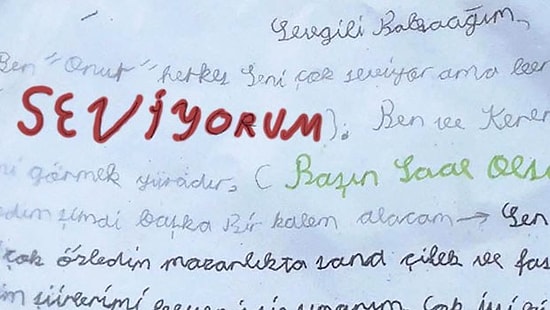 Sevgili Babacağım,
Ben "Onur" herkes Seni çok seviyor ama ben
SEVİYORUM). Ben ve Kerem
görmek yüradır. ( Başın Saal Olsu
şimdi başka Bir kalem alacam → Sen
çok özledim mazarlıkta sana çilek ve fas
Çok iyi